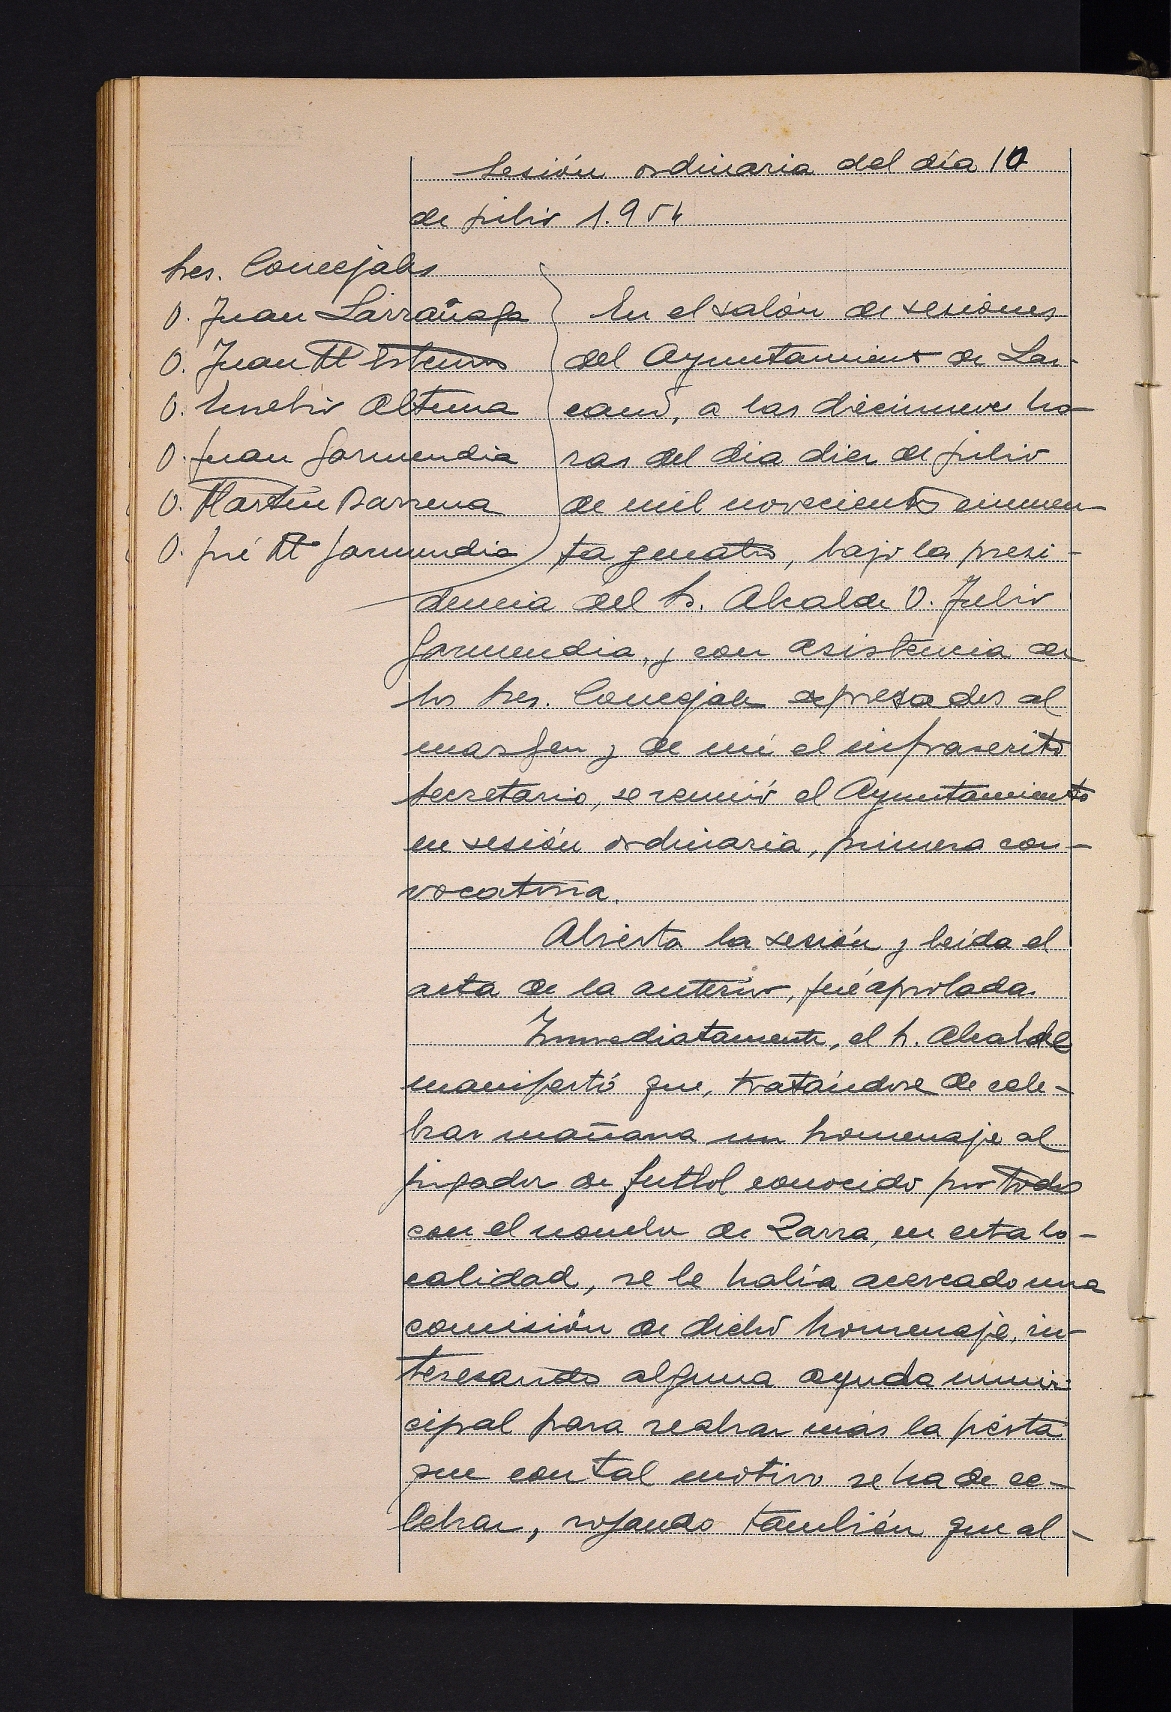 Sesión ordinaria del día 10
de julio 1.954
Sres. Concejales
D. Juan Larrañaga
D. Juan Mª
D. Eusebio Altuna
D. Juan Garmendia
D. Martín Barrena
D. José Mª Garmendia
En el salón de sesiones
del Ayuntamiento de Laz-
cano, a las diecinueve ho-
ras del dia diez de julio
de mil novecientos cincuen-
ta y cuatro, bajo la presi-
dencia del Sr. Alcalde D. Julio
Garmendia, y con asistencia de
los Sres. Concejales expresados al
margen y de mí el infrascrito
Secretario, se reunió el Ayuntamiento
en sesión ordinaria, primera con-
vocatoria.
Abierta la sesión y leída el
acta de la anterior, fué aprobada.
Inmediatamente, el Sr. Alcalde
manifestó que, tratándose de cele-
brar mañana un homenaje al
jugador de futbol conocido por todos
con el nombre de Zarra, en esta lo-
calidad, se le había acercado una
comisión de dicho homenaje, in-
teresando alguna ayuda muni-
cipal para realzar más la fiesta
que con tal motivo se ha de ce-
lebrar, rogando también que al-